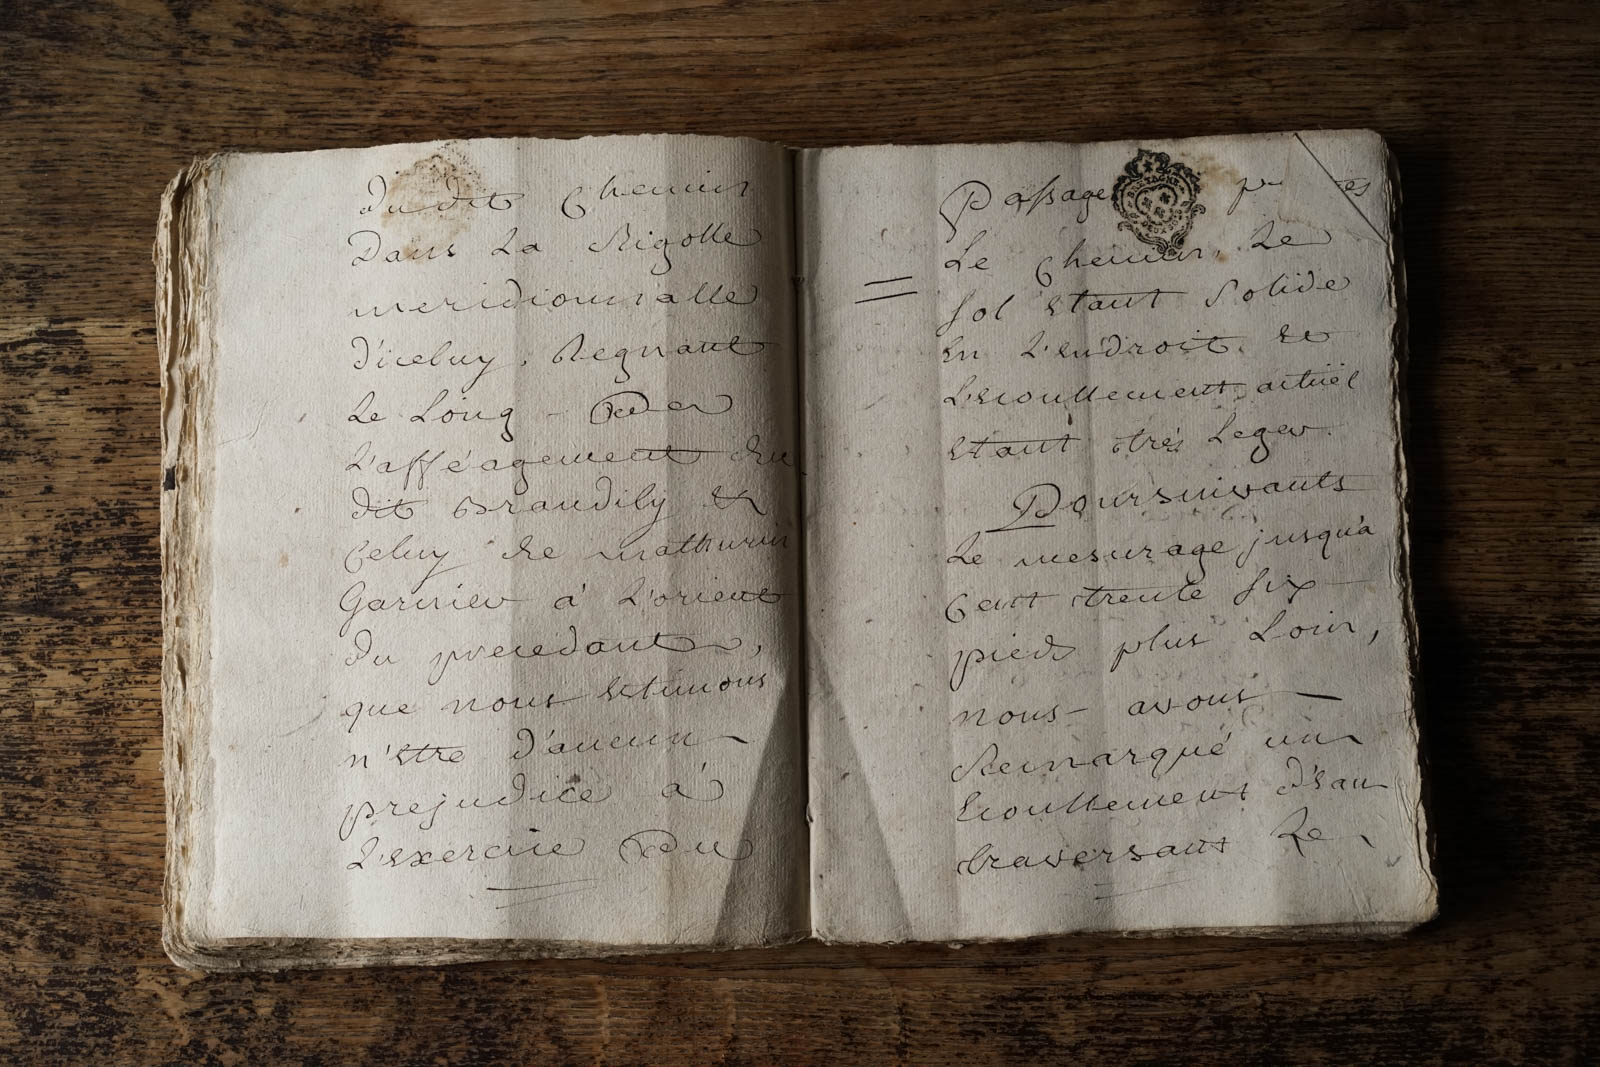 du dit Chemin
Dans La Rigolle
meridionnalle
d'iceluy, Regnant
Le Long - De
L'afféagement du
dit Brandily &
Celuy de mathurin
Garnier à L'orient
du precedant,
que nous Estimons
n'Estre d'aucun
prejudice à
L'Exercice Du
Passage
Le Chemin, Le
sol Etant Solide
En L'Endroit Et
L'Ecoullement actuel
Etant très Leger.
Poursuivants
Le mesurage jusqu'a
Cent trente six
pieds plus Loin,
nous - avons
Remarqué un
Ecoullement d'Eau
traversant Le